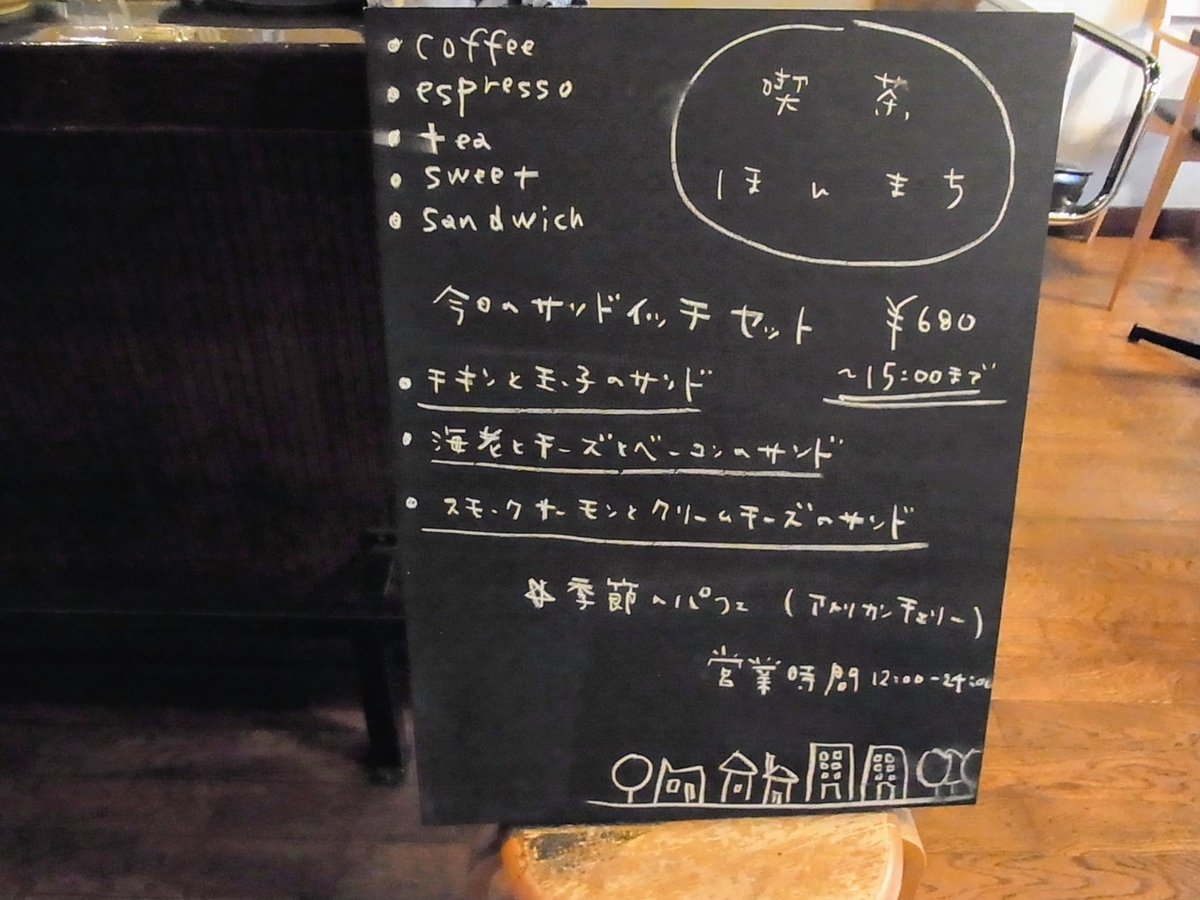 • coffee
• espresso
• tea
• sweet
• sandwich
喫 茶
ほ ん ま ち
今日のサンドイッチセット ¥680
• チキンと玉子のサンド ~15:00まで
• 海老とチーズとベーコンのサンド
• スモークサーモンとクリームチーズのサンド
季節のパフェ (アメリカンチェリー)
営業時間 12:00-24:00